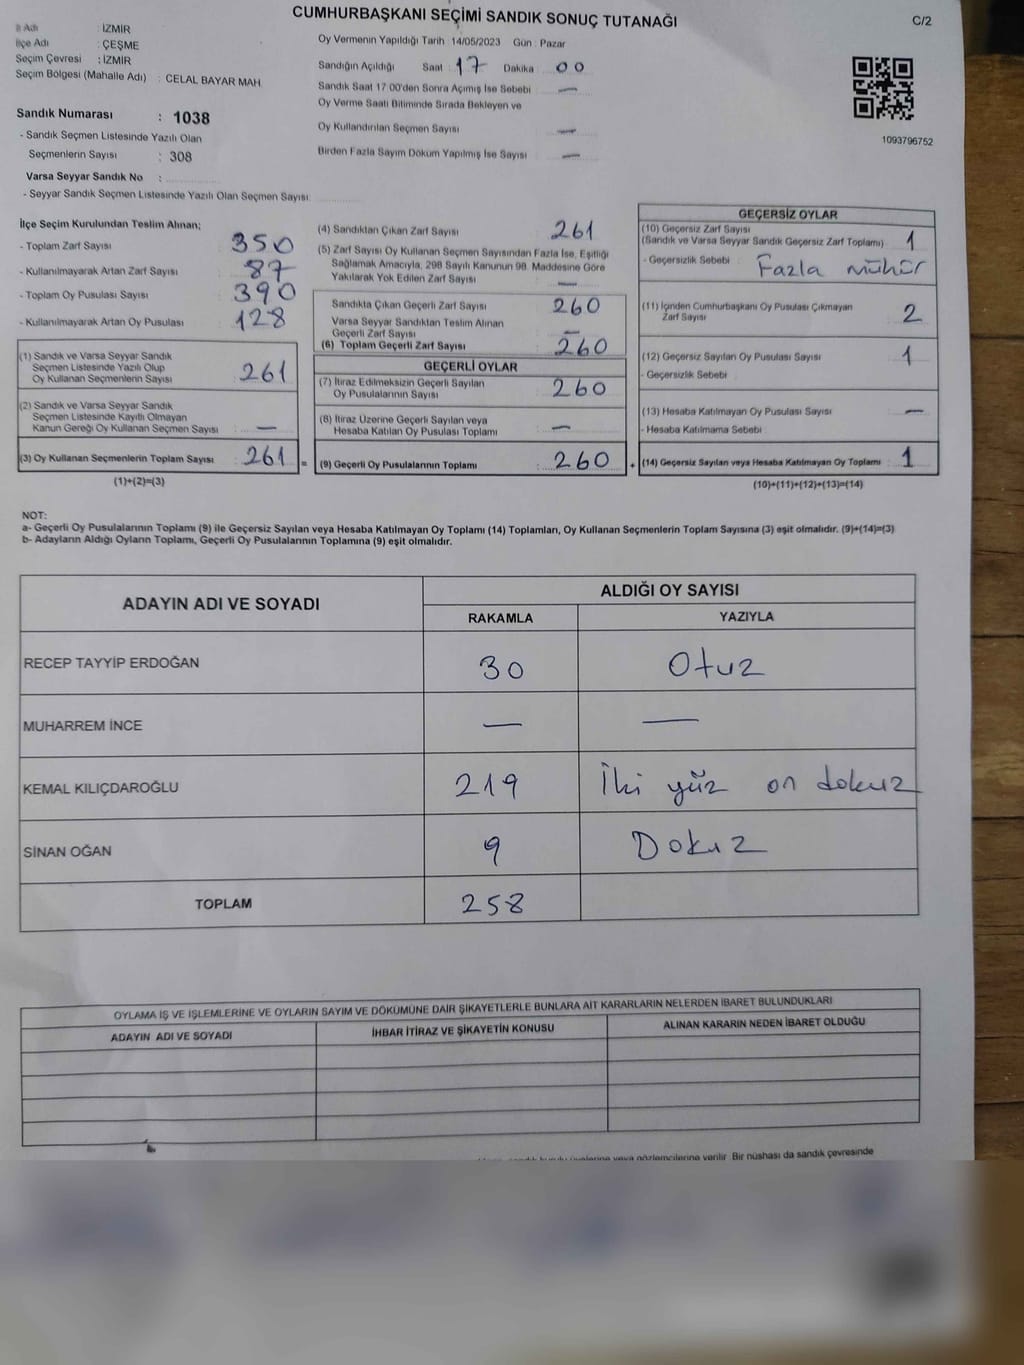 CUMHURBAŞKANI SEÇİMİ SANDIK SONUÇ TUTANAĞI
C/2
İl Adı : İZMİR
İlçe Adı : ÇEŞME
Seçim Çevresi : İZMİR
Seçim Bölgesi (Mahalle Adı) : CELAL BAYAR MAH
Sandık Numarası : 1038
- Sandık Seçmen Listesinde Yazılı Olan
Seçmenlerin Sayısı : 308
Varsa Seyyar Sandık No :
- Seyyar Sandık Seçmen Listesinde Yazılı Olan Seçmen Sayısı:
Oy Vermenin Yapıldığı Tarih 14/05/2023 Gün : Pazar
Sandığın Açıldığı Saat : 17 Dakika : 00
Sandık Saat 17 00'den Sonra Açımış İse Sebebi : —
Oy Verme Saati Bitiminde Sırada Bekleyen ve
Oy Kullandırılan Seçmen Sayısı : —
Birden Fazla Sayım Döküm Yapılmış İse Sayısı : —
1093796752
İlçe Seçim Kurulundan Teslim Alınan;
- Toplam Zarf Sayısı : 350
- Kullanılmayarak Artan Zarf Sayısı : 87
- Toplam Oy Pusulası Sayısı : 390
- Kullanılmayarak Artan Oy Pusulası : 128
(1) Sandık ve Varsa Seyyar Sandık
Seçmen Listesinde Yazılı Olup
Oy Kullanan Seçmenlerin Sayısı : 261
(2) Sandık ve Varsa Seyyar Sandık
Seçmen Listesinde Kayıtlı Olmayan
Kanun Gereği Oy Kullanan Seçmen Sayısı : —
(3) Oy Kullanan Seçmenlerin Toplam Sayısı : 261 =
(1)+(2)=(3)
(4) Sandıktan Çıkan Zarf Sayısı : 261
(5) Zarf Sayısı Oy Kullanan Seçmen Sayısından Fazla İse, Eşitliği
Sağlamak Amacıyla, 298 Sayılı Kanunun 98. Maddesine Göre
Yakılarak Yok Edilen Zarf Sayısı : —
Sandıkta Çıkan Geçerli Zarf Sayısı : 260
Varsa Seyyar Sandıktan Teslim Alınan
Geçerli Zarf Sayısı : —
(6) Toplam Geçerli Zarf Sayısı : 260
GEÇERLİ OYLAR
(7) İtiraz Edilmeksizin Geçerli Sayılan
Oy Pusulalarının Sayısı : 260
(8) İtiraz Üzerine Geçerli Sayılan veya
Hesaba Katılan Oy Pusulası Toplamı : —
(9) Geçerli Oy Pusulalarının Toplamı : 260 +
GEÇERSİZ OYLAR
(10) Geçersiz Zarf Sayısı
(Sandık ve Varsa Seyyar Sandık Geçersiz Zarf Toplamı) : 1
- Geçersizlik Sebebi : Fazla mühür
(11) İçinden Cumhurbaşkanı Oy Pusulası Çıkmayan
Zarf Sayısı : 2
(12) Geçersiz Sayılan Oy Pusulası Sayısı : 1
- Geçersizlik Sebebi :
(13) Hesaba Katılmayan Oy Pusulası Sayısı : —
- Hesaba Katılmama Sebebi :
(14) Geçersiz Sayılan veya Hesaba Katılmayan Oy Toplamı : 1
(10)+(11)+(12)+(13)=(14)
NOT:
a- Geçerli Oy Pusulalarının Toplamı (9) ile Geçersiz Sayılan veya Hesaba Katılmayan Oy Toplamı (14) Toplamları, Oy Kullanan Seçmenlerin Toplam Sayısına (3) eşit olmalıdır. (9)+(14)=(3)
b- Adayların Aldığı Oyların Toplamı, Geçerli Oy Pusulalarının Toplamına (9) eşit olmalıdır.
ADAYIN ADI VE SOYADI
ALDIĞI OY SAYISI
RAKAMLA YAZIYLA
RECEP TAYYİP ERDOĞAN 30 Otuz
MUHARREM İNCE — —
KEMAL KILIÇDAROĞLU 219 İki yüz on dokuz
SİNAN OĞAN 9 Dokuz
TOPLAM 258
OYLAMA İŞ VE İŞLEMLERİNE VE OYLARIN SAYIM VE DÖKÜMÜNE DAİR ŞİKAYETLERLE BUNLARA AİT KARARLARIN NELERDEN İBARET BULUNDUKLARI
ADAYIN ADI VE SOYADI İHBAR İTİRAZ VE ŞİKAYETİN KONUSU ALINAN KARARIN NEDEN İBARET OLDUĞU
sandık kurulu üyelerine veya gözlemcilerine verilir. Bir nüshası da sandık çevresinde